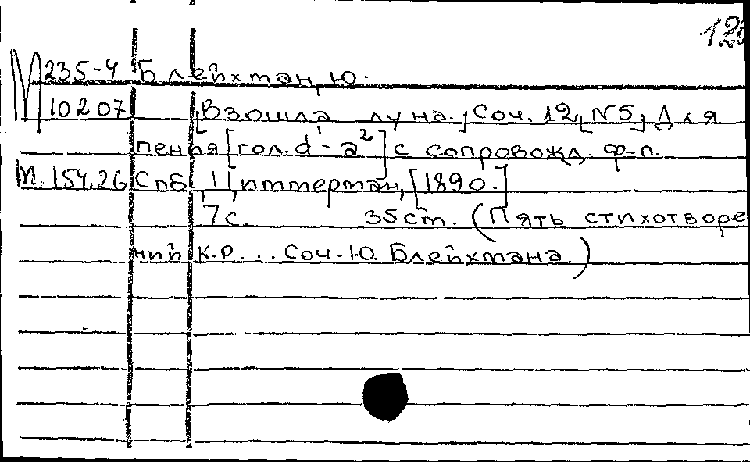 120
М 235-4 Блейхман, Ю.
10207 Взошла луна. Соч. 12, №5, Для
пенья [гол. d¹-a²] с сопровожд. ф-п.
М. 154.26 СПб, Циммерман, [1890.]
7 с. 35 cm. (Пять стихотворе
ний К.Р... Соч. Ю. Блейхмана)